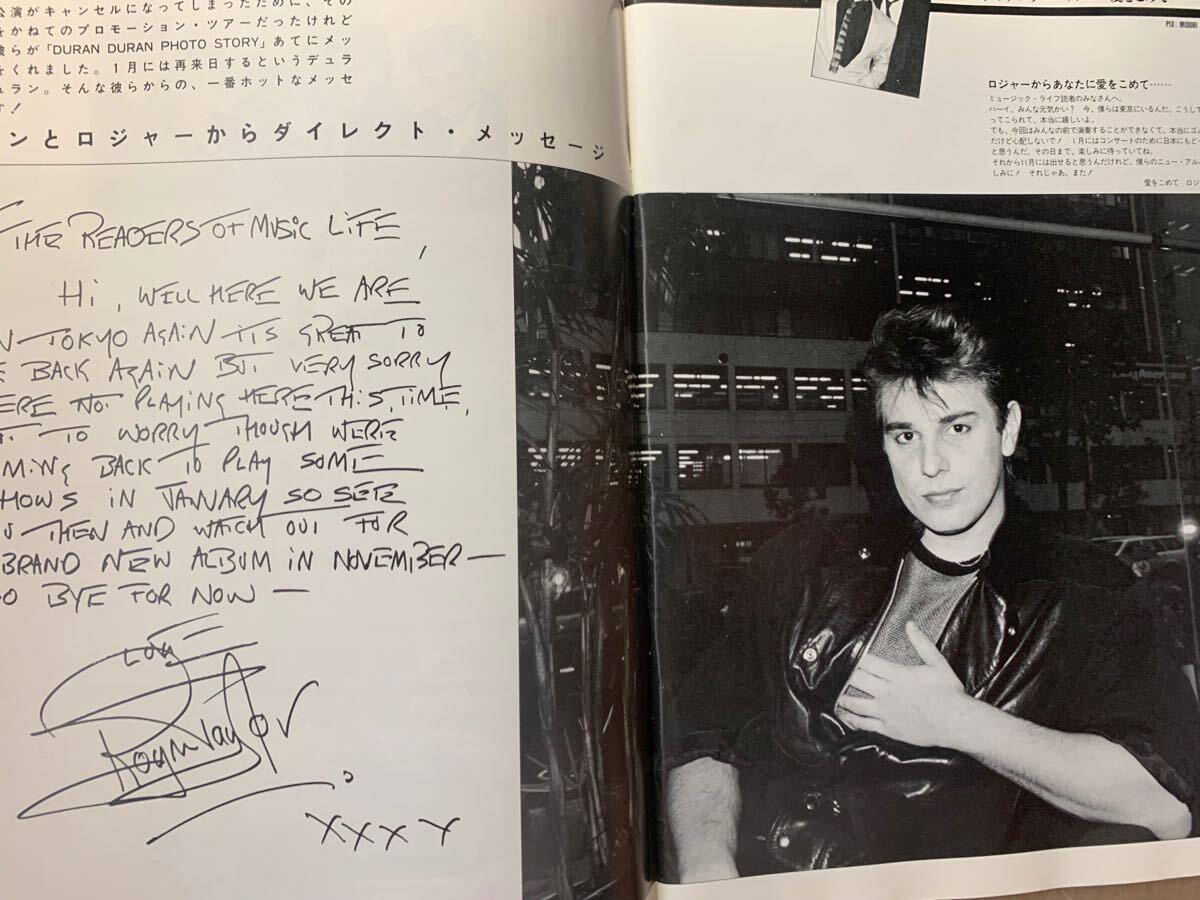 公演がキャンセルになってしまったために、その
をかねてのプロモーション・ツアーだったけれど
彼らが「DURAN DURAN PHOTO STORY」あてにメッ
をくれました。1月には再来日するというデュラ
ュラン。そんな彼らからの、一番ホットなメッセ
す!
ンとロジャーからダイレクト・メッセージ
THE READERS OF MUSIC LIFE,
Hi, WELL HERE WE ARE
N TOKYO AGAIN ITS GREAT TO
E BACK AGAIN BUT VERY SORRY
ERE NOT PLAYING HERE THIS TIME,
OT TO WORRY THOUGH WERE
MING BACK TO PLAY SOME
HOWS IN JANUARY SO SEE
OU THEN AND WATCH OUT FOR
BRAND NEW ALBUM IN NOVEMBER —
O BYE FOR NOW —
LOVE
Roger Taylor
XXXX
PIX: MIDORI
ロジャーからあなたに愛をこめて……
ミュージック・ライフ読者のみなさんへ。
ハーイ、みんな元気かい? 今、僕らは東京にいるんだ。こうして
ってこられて、本当に嬉しいよ。
でも、今回はみんなの前で演奏することができなくて、本当にゴメ
だけど心配しないで! 1月にはコンサートのために日本にもどっ
と思うんだ。その日まで、楽しみに待っていてね。
それから11月には出せると思うんだけれど、僕らのニュー・アル
しみに! それじゃあ、また!
愛をこめて ロジ